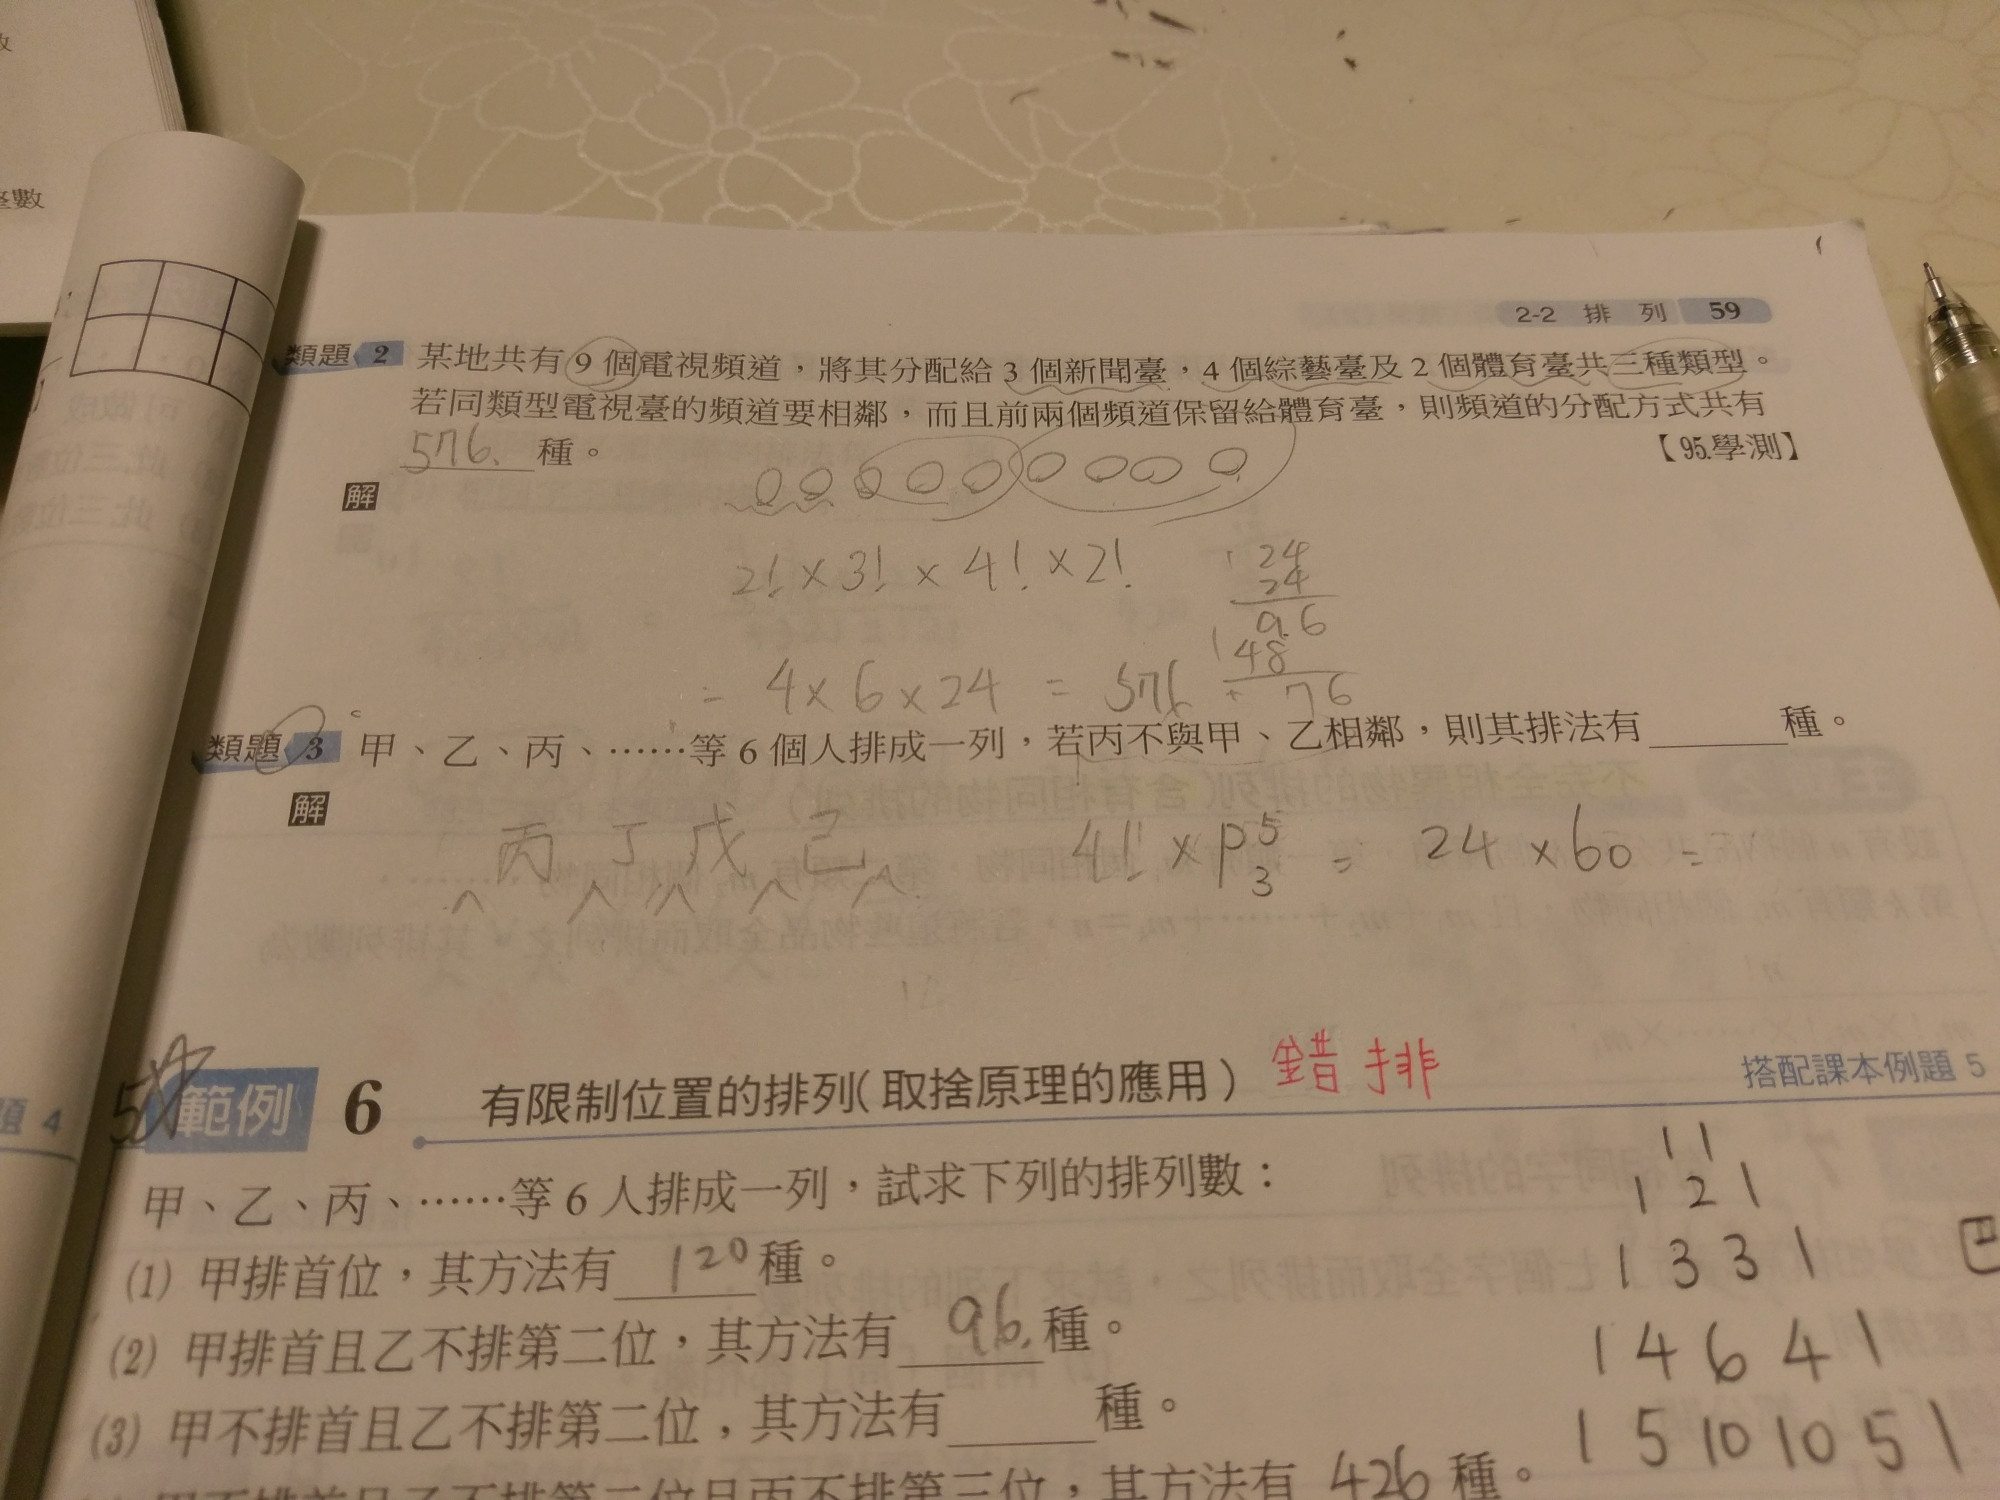 整數
2-2 排 列 59
類題 2 某地共有 9 個電視頻道，將其分配給 3 個新聞臺，4 個綜藝臺及 2 個體育臺共三種類型。
若同類型電視臺的頻道要相鄰，而且前兩個頻道保留給體育臺，則頻道的分配方式共有
576. 種。 【95.學測】
解
2! × 3! × 4! × 2!
24
24
96
48
576
= 4 × 6 × 24 = 576
類題 3 甲、乙、丙、……等 6 個人排成一列，若丙不與甲、乙相鄰，則其排法有______種。
解
丙 丁 戊 己
4! × P⁵₃ = 24 × 60 =
範例 6 有限制位置的排列(取捨原理的應用) 錯排
搭配課本例題 5
題 4
甲、乙、丙、……等 6 人排成一列，試求下列的排列數：
(1) 甲排首位，其方法有 120 種。
(2) 甲排首且乙不排第二位，其方法有 96. 種。
(3) 甲不排首且乙不排第二位，其方法有______種。
甲不排首且乙不排第二位且丙不排第三位，其方法有 426 種。
1 1
1 2 1
1 3 3 1
1 4 6 4 1
1 5 10 10 5 1